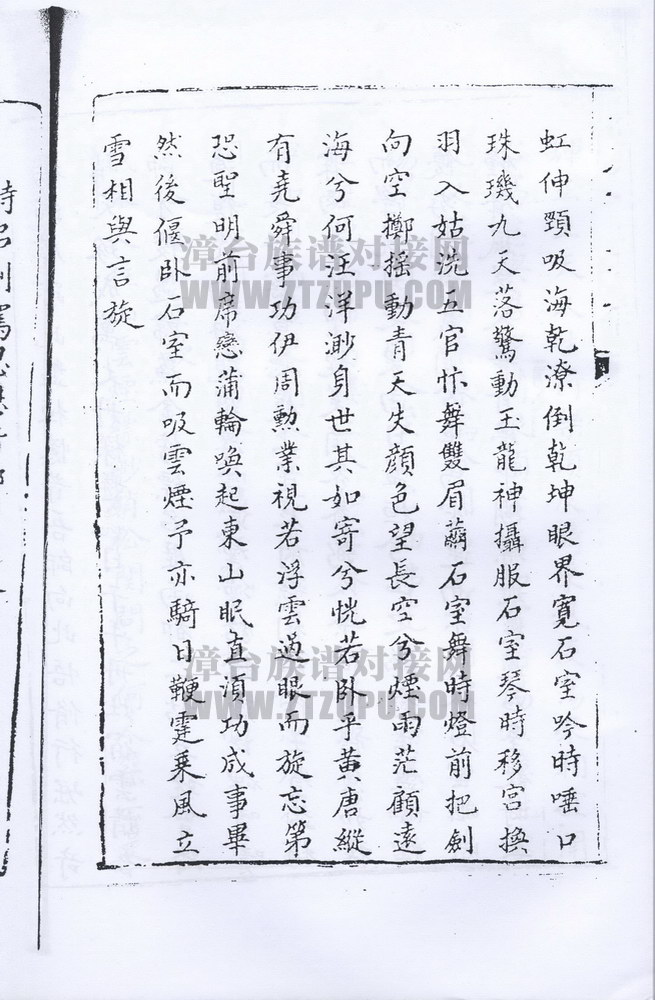 虹伸頸吸海乾潦倒乾坤眼界寬石室吟時唾口
珠璣九天落驚動玉龍神攝服石室琴時移宮換
羽入姑洗五官忭舞雙眉繭石室舞時燈前把劍
向空擲搖動青天失顏色望長空兮煙雨茫顧遠
海兮何汪洋渺身世其如寄兮恍若卧乎黃唐縱
有堯舜事功伊周勲業視若浮雲過眼而旋忘第
恐聖明前席戀蒲輪喚起東山眠直須功成事畢
然後偃卧石室而吸雲煙予亦騎日鞭霆乘風立
雪相與言旋
漳台族谱对接网
WWW.ZTZUPU.COM
漳台族谱对接网
WWW.ZTZUPU.COM